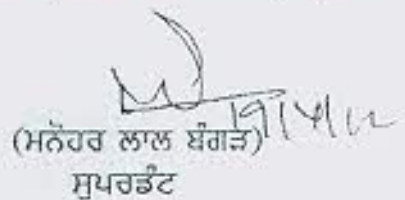 (ਮਨੋਹਰ ਲਾਲ ਬੰਗੜ)
ਸੁਪਰਡੰਟ